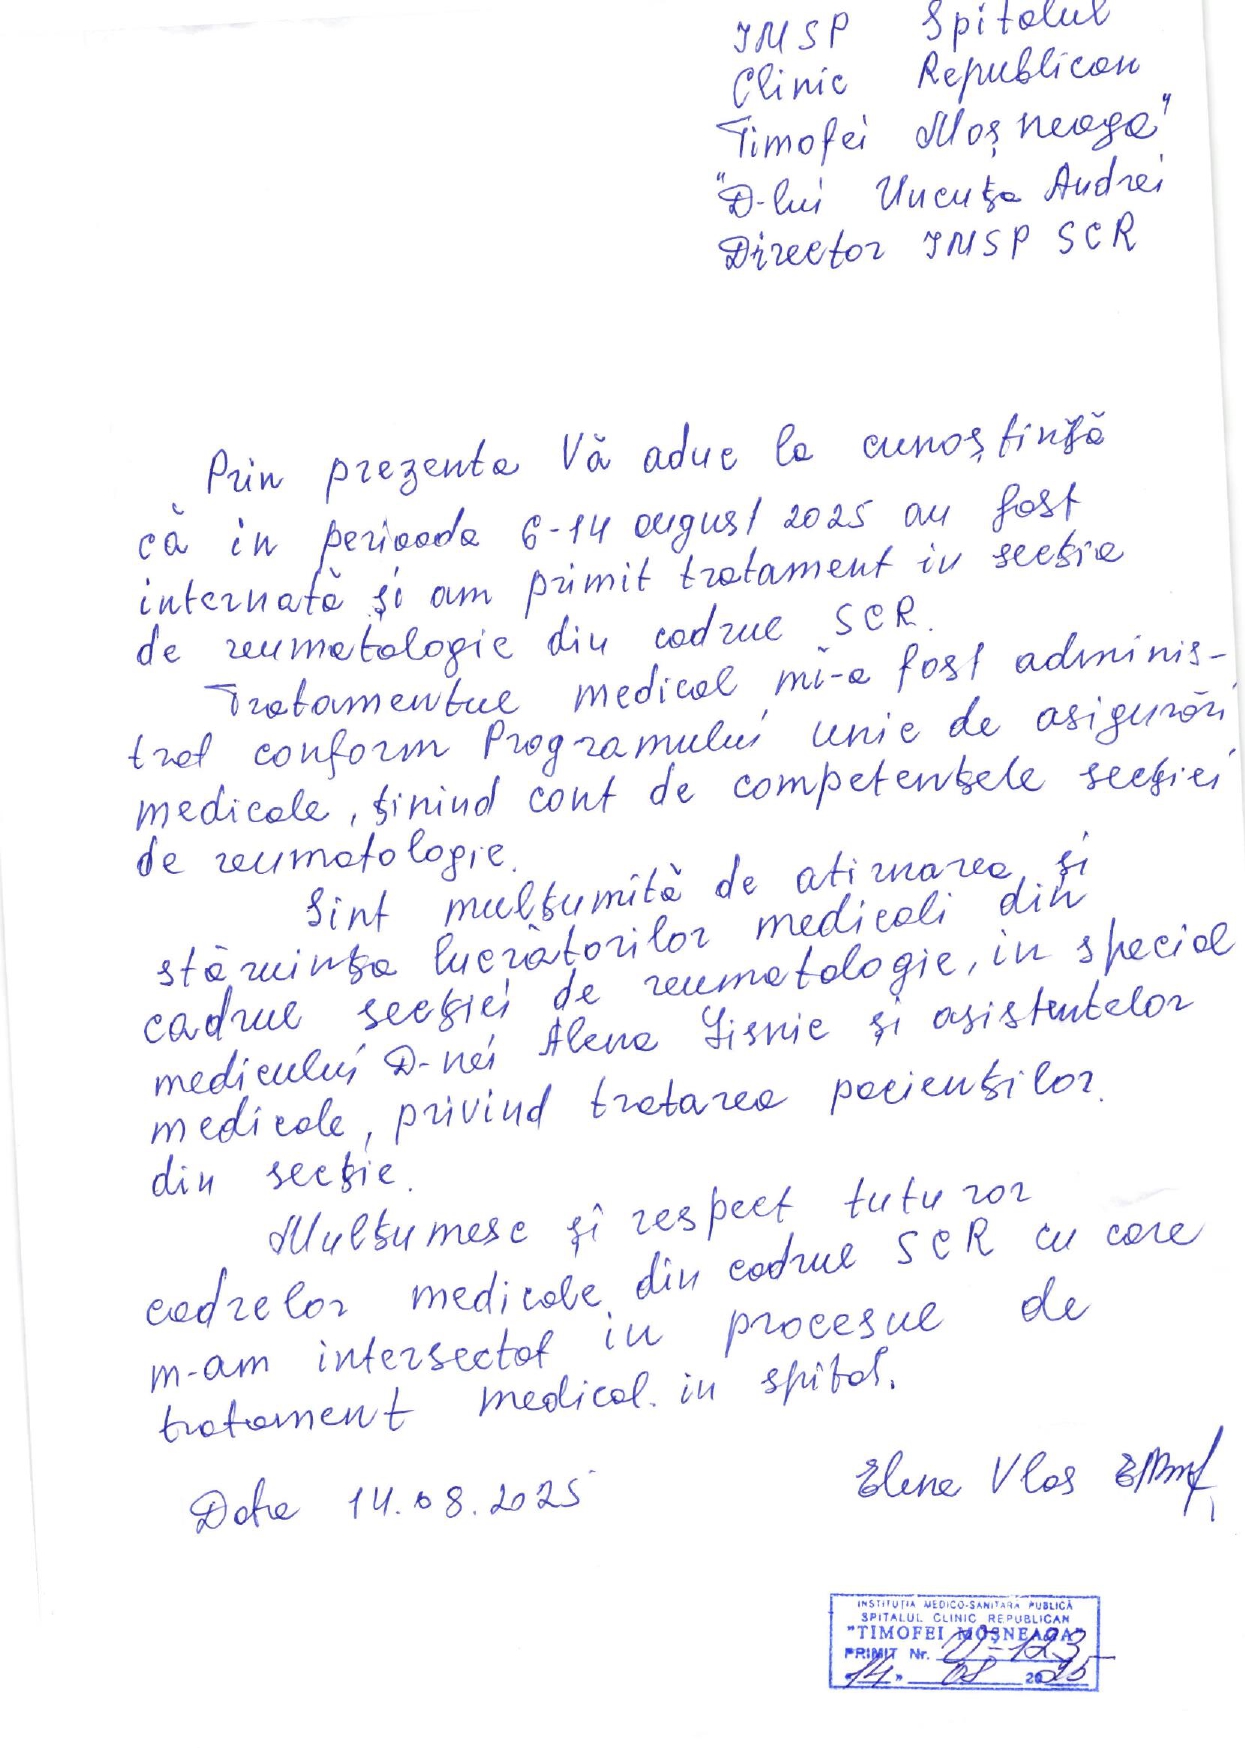 IMSP Spitalul
Clinic Republican
Timofei Moșneaga"
"D-lui Uncuța Andrei
Director IMSP SCR
Prin prezenta Vă aduc la cunoștință
că in perioada 6-14 august 2025 au fost
internată și am primit tratament in secția
de reumatologie din cadrul SCR.
Tratamentul medical mi-a fost adminis-
trat conform Programului unic de asigurări
medicale, ținind cont de competențele secției
de reumatologie.
Sint mulțumită de atirnarea și
stăruința lucrătorilor medicali din
cadrul secției de reumatologie, in special
medicului D-nei Alena Lisnic și asistentelor
medicale, privind tratarea pacienților
din secție.
Mulțumesc și respect tuturor
cadrelor medicale din cadrul SCR cu care
m-am intersectat in procesul de
tratament medical in spital.
Data 14.08.2025
Elena Vlas
INSTITUȚIA MEDICO-SANITARĂ PUBLICĂ
SPITALUL CLINIC REPUBLICAN
"TIMOFEI MOȘNEAGA"
PRIMIT Nr.
"14" 08 2025